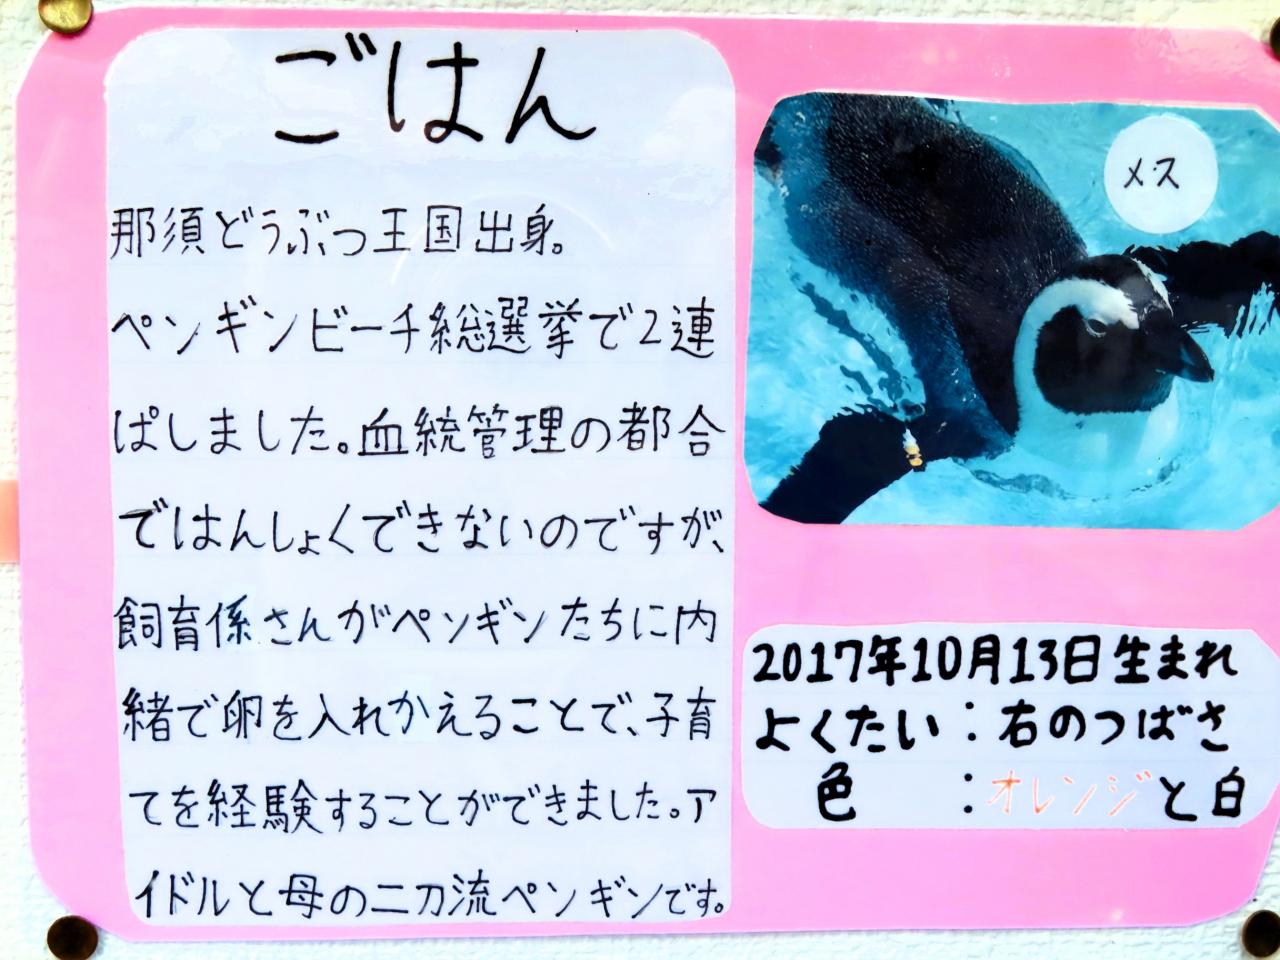 ごはん
那須どうぶつ王国出身。
ペンギンビーチ総選挙で2連
ぱしました。血統管理の都合
ではんしょくできないのですが、
飼育係さんがペンギンたちに内
緒で卵を入れかえることで、子育
てを経験することができました。ア
イドルと母の二刀流ペンギンです。
メス
2017年10月13日生まれ
よくたい：右のつばさ
色：オレンジと白